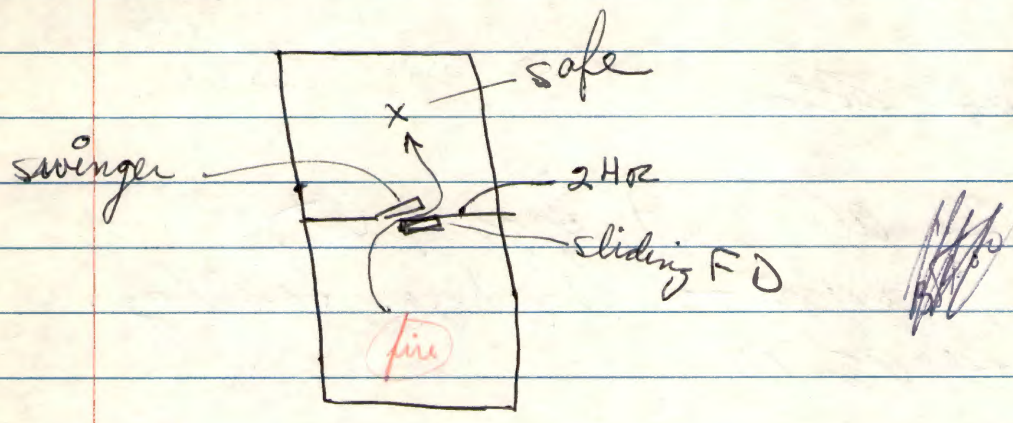 safe
X
swinger
2 HR
sliding FD
fire